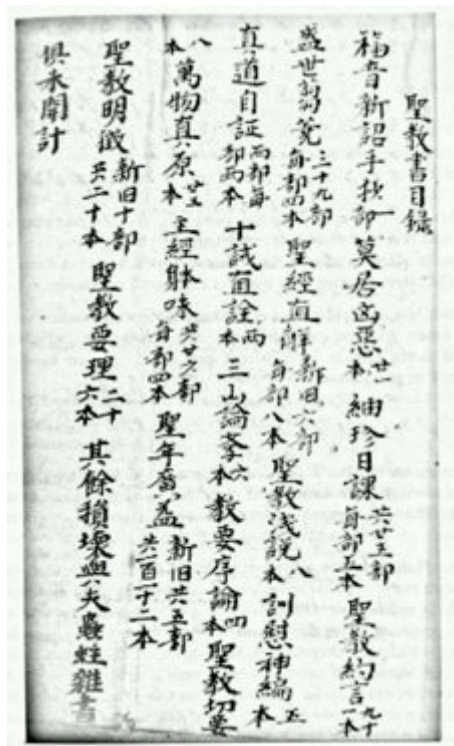 聖教書目録
福音新詔手抄一部 莫居凶惡廿一本 細珍日課共廿三部每部五本 聖教約言九十一本
盛世芻蕘三十九部每部四本 聖經直解新旧六部每部八本 聖教浅説八本 訓慰神編五本
真道自証兩部每部兩本 十誡直詮兩本 三山論李六本 教要序論四本 聖教切要
八本 萬物真原廿五本 主經躰味共廿六部每部四本 聖年廣益新旧共五部共一百二十二本
聖教明徵新旧十部共二十本 聖教要理二十六本 其餘損壞與夫蟲蛀雜書
俱未開計